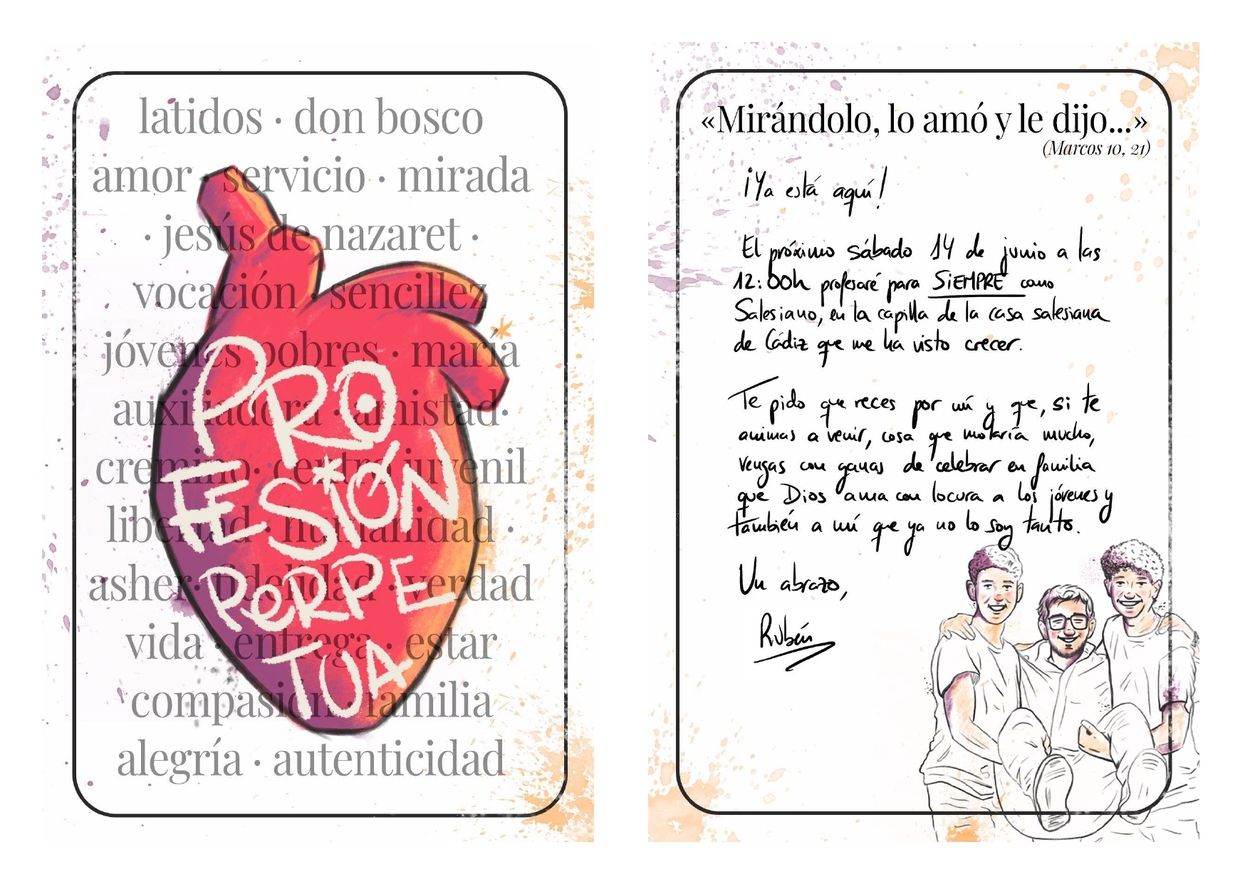 latidos · don bosco
amor · servicio · mirada
· jesús de nazaret ·
vocación · sencillez
jóvenes pobres · maría
auxiliadora · amistad·
cremino· centro juvenil
libertad · humanidad ·
asher· fidelidad · verdad
vida · entrega · estar
compasión · familia
alegría · autenticidad
PRO
FESIÓN
PERPE
TUA
«Mirándolo, lo amó y le dijo...»
(Marcos 10, 21)
¡Ya está aquí!
El próximo sábado 14 de junio a las
12:00h profesaré para SIEMPRE como
Salesiano, en la capilla de la casa salesiana
de Cádiz que me ha visto crecer.
Te pido que reces por mí y que, si te
animas a venir, cosa que molaría mucho,
vengas con ganas de celebrar en familia
que Dios ama con locura a los jóvenes y
también a mí que ya no lo soy tanto.
Un abrazo,
Rubén